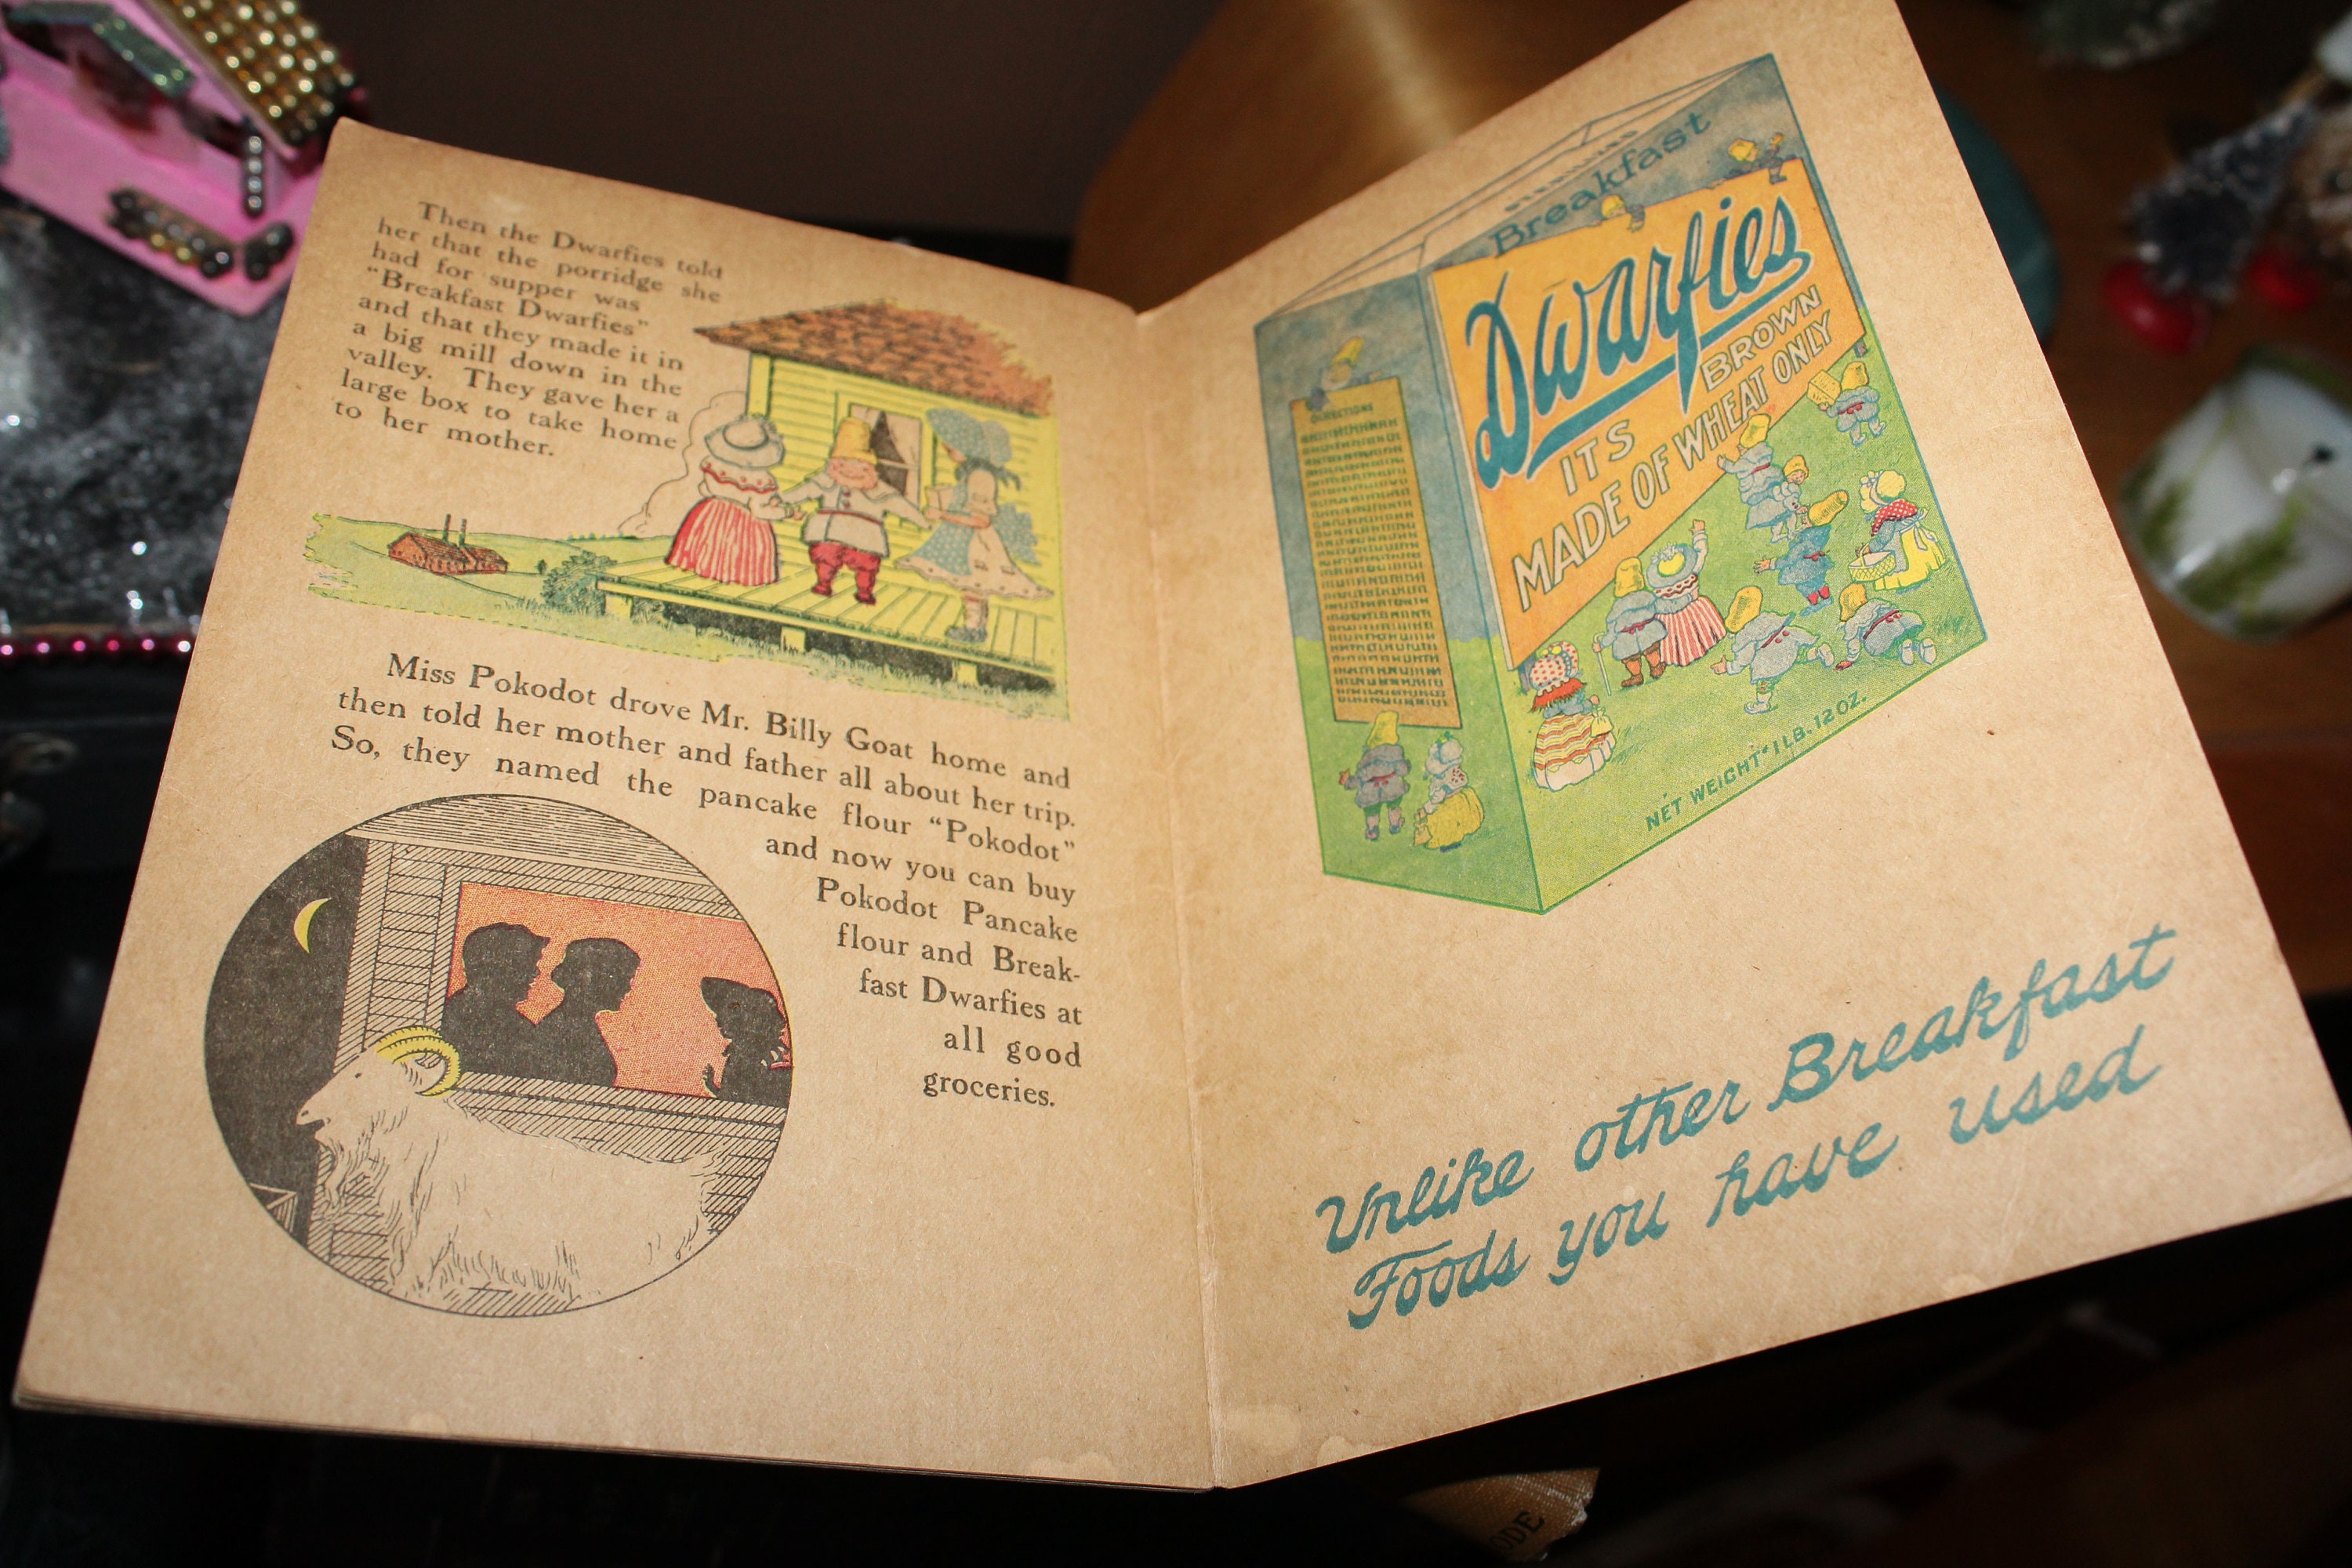 Then the Dwarfies told
her that the porridge she
had for supper was
"Breakfast Dwarfies"
and that they made it in
a big mill down in the
valley. They gave her a
large box to take home
to her mother.
Miss Pokodot drove Mr. Billy Goat home and
then told her mother and father all about her trip.
So, they named the pancake flour "Pokodot"
and now you can buy
Pokodot Pancake
flour and Break-
fast Dwarfies at
all good
groceries.
Breakfast
Dwarfies
ITS BROWN
MADE OF WHEAT ONLY
DIRECTIONS
NET WEIGHT 1 LB. 12 OZ.
Unlike other Breakfast
Foods you have used
ODE